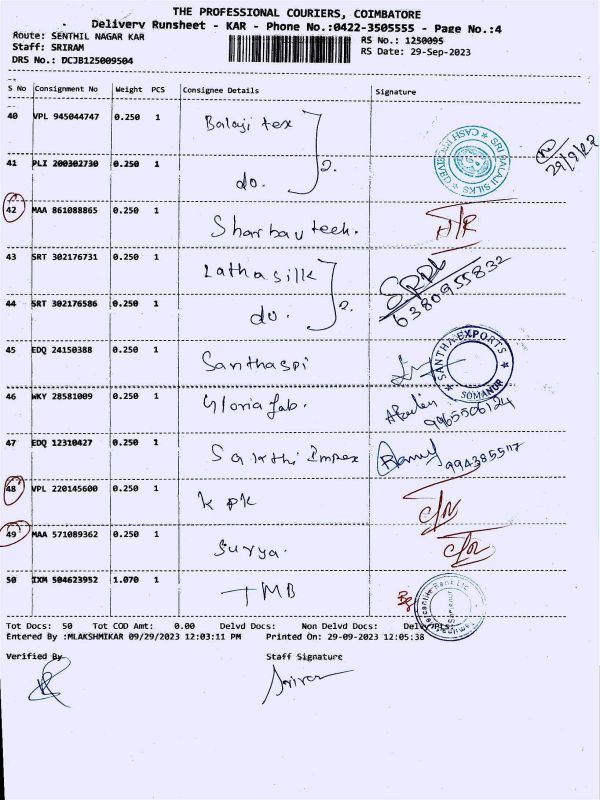 THE PROFESSIONAL COURIERS, COIMBATORE
Delivery Runsheet - KAR - Phone No.:0422-3505555 - Page No.:4
Route: SENTHIL NAGAR KAR
RS No.: 1250095
Staff: SRIRAM
RS Date: 29-Sep-2023
DRS No.: DCJB125009504
S No Consignment No Weight PCS Consignee Details Signature
40 VPL 945044747 0.250 1 Balaji tex
SRI BALAJI SILKS CASH RECEIVED
41 PLI 200302730 0.250 1 do. 2.
42 MAA 861088865 0.250 1 Sharbav teeh.
43 SRT 302176731 0.250 1 Lathasilk
6380955832
44 SRT 302176586 0.250 1 do. 2.
45 EDQ 24150388 0.250 1 Santhaspi
SANTHA EXPORTS SOMANUR
46 WKY 28581009 0.250 1 Gloria fab. 9965506124
47 EDQ 12310427 0.250 1 Sakthi Impex 9943855117
48 VPL 220145600 0.250 1 k pk
49 MAA 571089362 0.250 1 Surya.
50 IXM 504623952 1.070 1 TMB
Tot Docs: 50 Tot COD Amt: 0.00 Delvd Docs: Non Delvd Docs:
Entered By :MLAKSHMIKAR 09/29/2023 12:03:11 PM Printed On: 29-09-2023 12:05:38
Verified By Staff Signature
Sriram